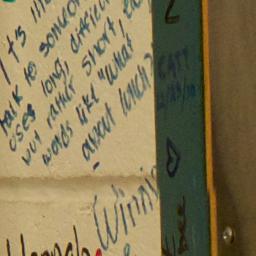 It's
talk to someone
uses long, difficult
but rather short, easy
words like "What
about lunch?"
- Winni
CATT
12/28/10
Hannah